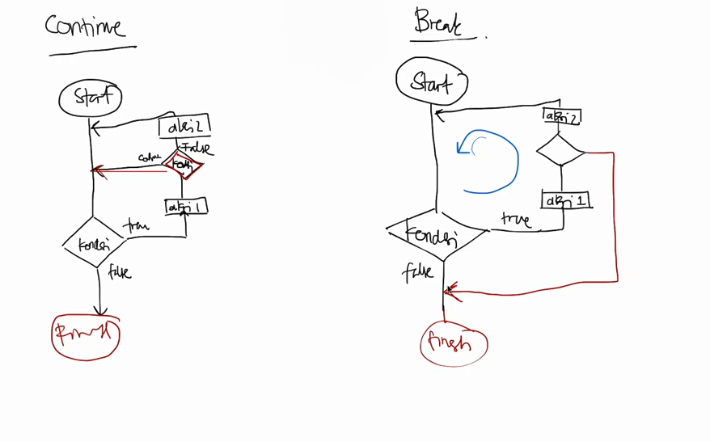 Continue
Start
aksi2
False
aksi1
true
Kondisi
false
Break
Start
aksi2
aksi1
true
Kondisi
false
finish